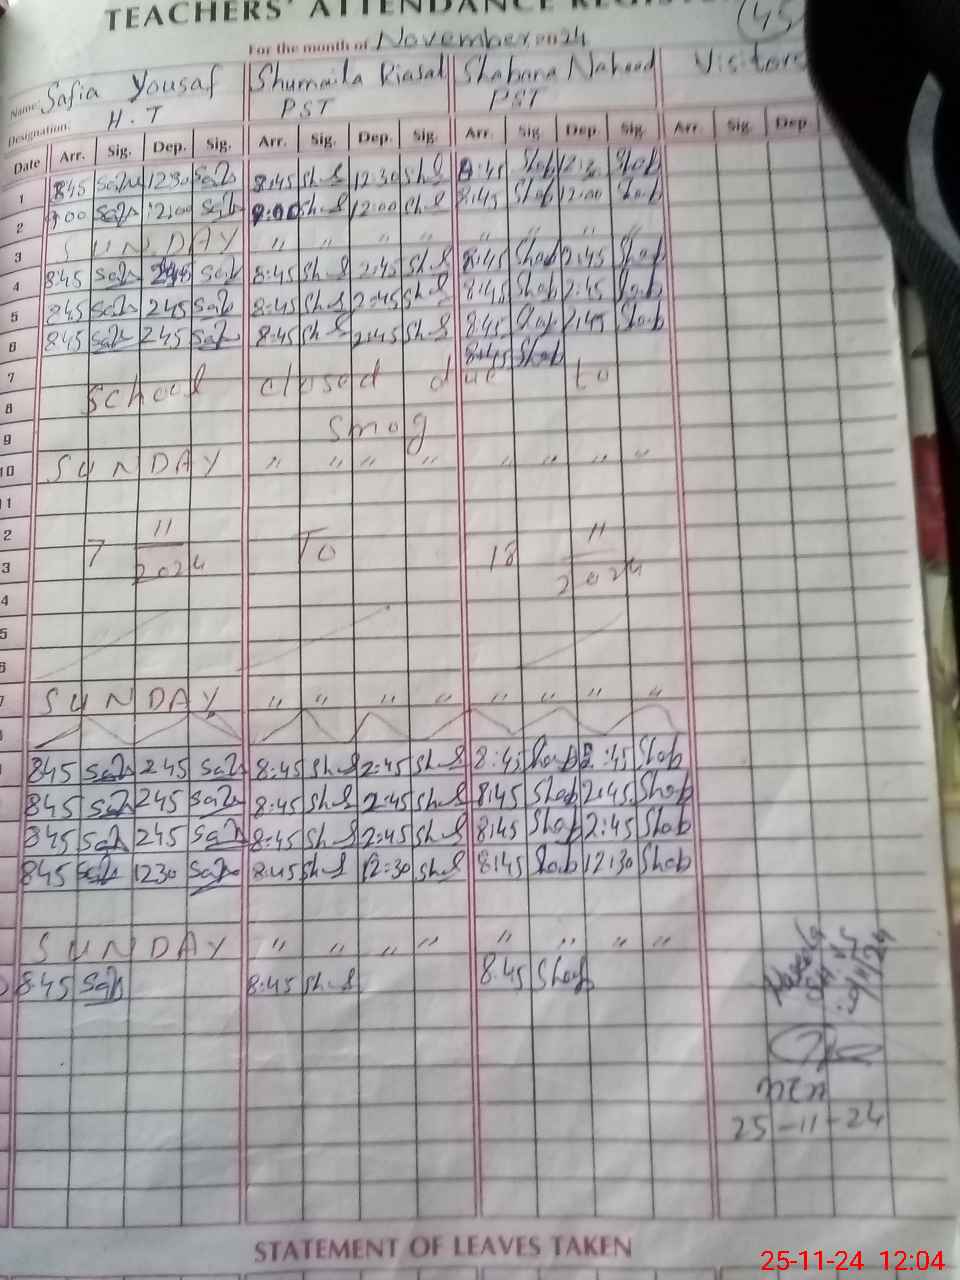 TEACHERS' ATTENDANCE REGISTER
45
For the month of November 2024
Name: Safia Yousaf Shumaila Riasat Shabana Naheed Visitors
Designation: H.T PST PST
Date Arr. Sig. Dep. Sig. Arr. Sig. Dep. Sig. Arr. Sig. Dep. Sig. Arr. Sig. Dep
1 8:45 Safi 1230 Safi 8:45 Sh.l 12:30 Sh.l 8:45 Shab 12:30 Shab
2 9:00 Safi 12:00 Safi 9:00 Sh.l 12:00 Sh.l 8:45 Shab 12:00 Shab
3 SUNDAY " " " " " " " "
4 8:45 Safi 245 Safi 8:45 Sh.l 2:45 Sh.l 8:45 Shab 2:45 Shab
5 845 Safi 245 Safi 8:45 Sh.l 2:45 Sh.l 8:45 Shab 2:45 Shab
6 845 Safi 245 Safi 8:45 Sh.l 2:45 Sh.l 8:45 Shab 2:45 Shab
7 8:45 Shab
8 School closed due to
9 smog
10 SUNDAY " " " " " " " "
11
2
3 7 11/2024 To 18 11/2024
4
5
6
7 SUNDAY " " " " " " " "
845 Safi 245 Safi 8:45 Sh.l 2:45 Sh.l 8:45 Shab 2:45 Shab
845 Safi 245 Safi 8:45 Sh.l 2:45 Sh.l 8:45 Shab 2:45 Shab
845 Safi 245 Safi 8:45 Sh.l 2:45 Sh.l 8:45 Shab 2:45 Shab
845 Safi 1230 Safi 8:45 Sh.l 12:30 Sh.l 8:45 Shab 12:30 Shab
SUNDAY " " " " " " " "
8:45 Safi 8:45 Sh.l 8:45 Shab
25-11-24
STATEMENT OF LEAVES TAKEN
25-11-24 12:04